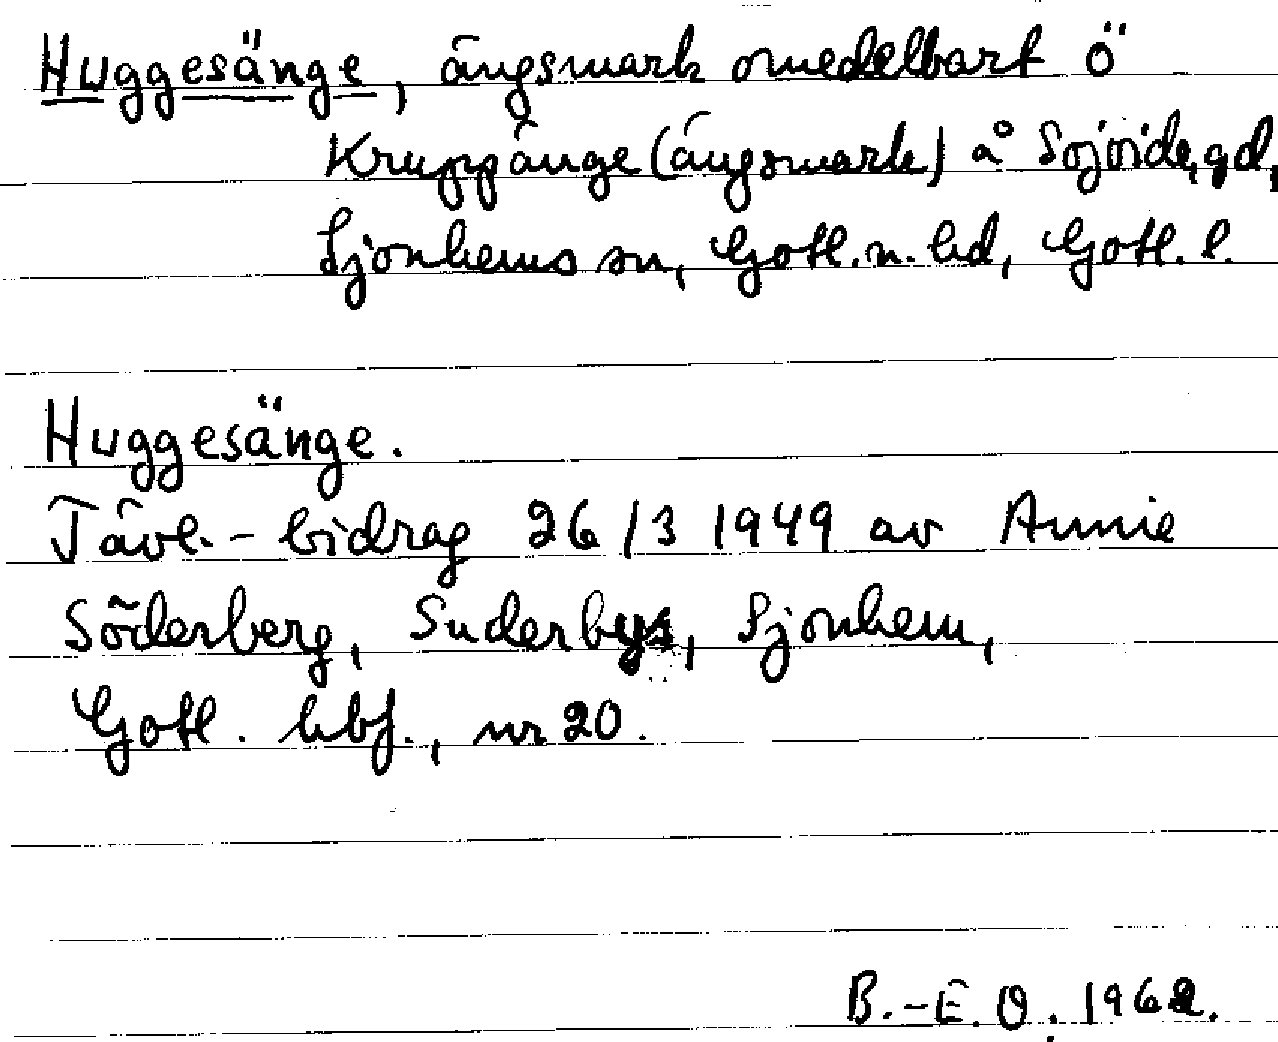 Huggesänge, ängsmark omedelbart ö
Kruppänge (ängsmark) å Sojvide, gd,
Sjonhems sn, Gotl. n. hd, Gotl. l.
Huggesänge.
Tävl.-bidrag 26/3 1949 av Annie
Söderberg, Suderbys, Sjonhem,
Gotl. hbf., nr 20.
B.-E. O. 1962.